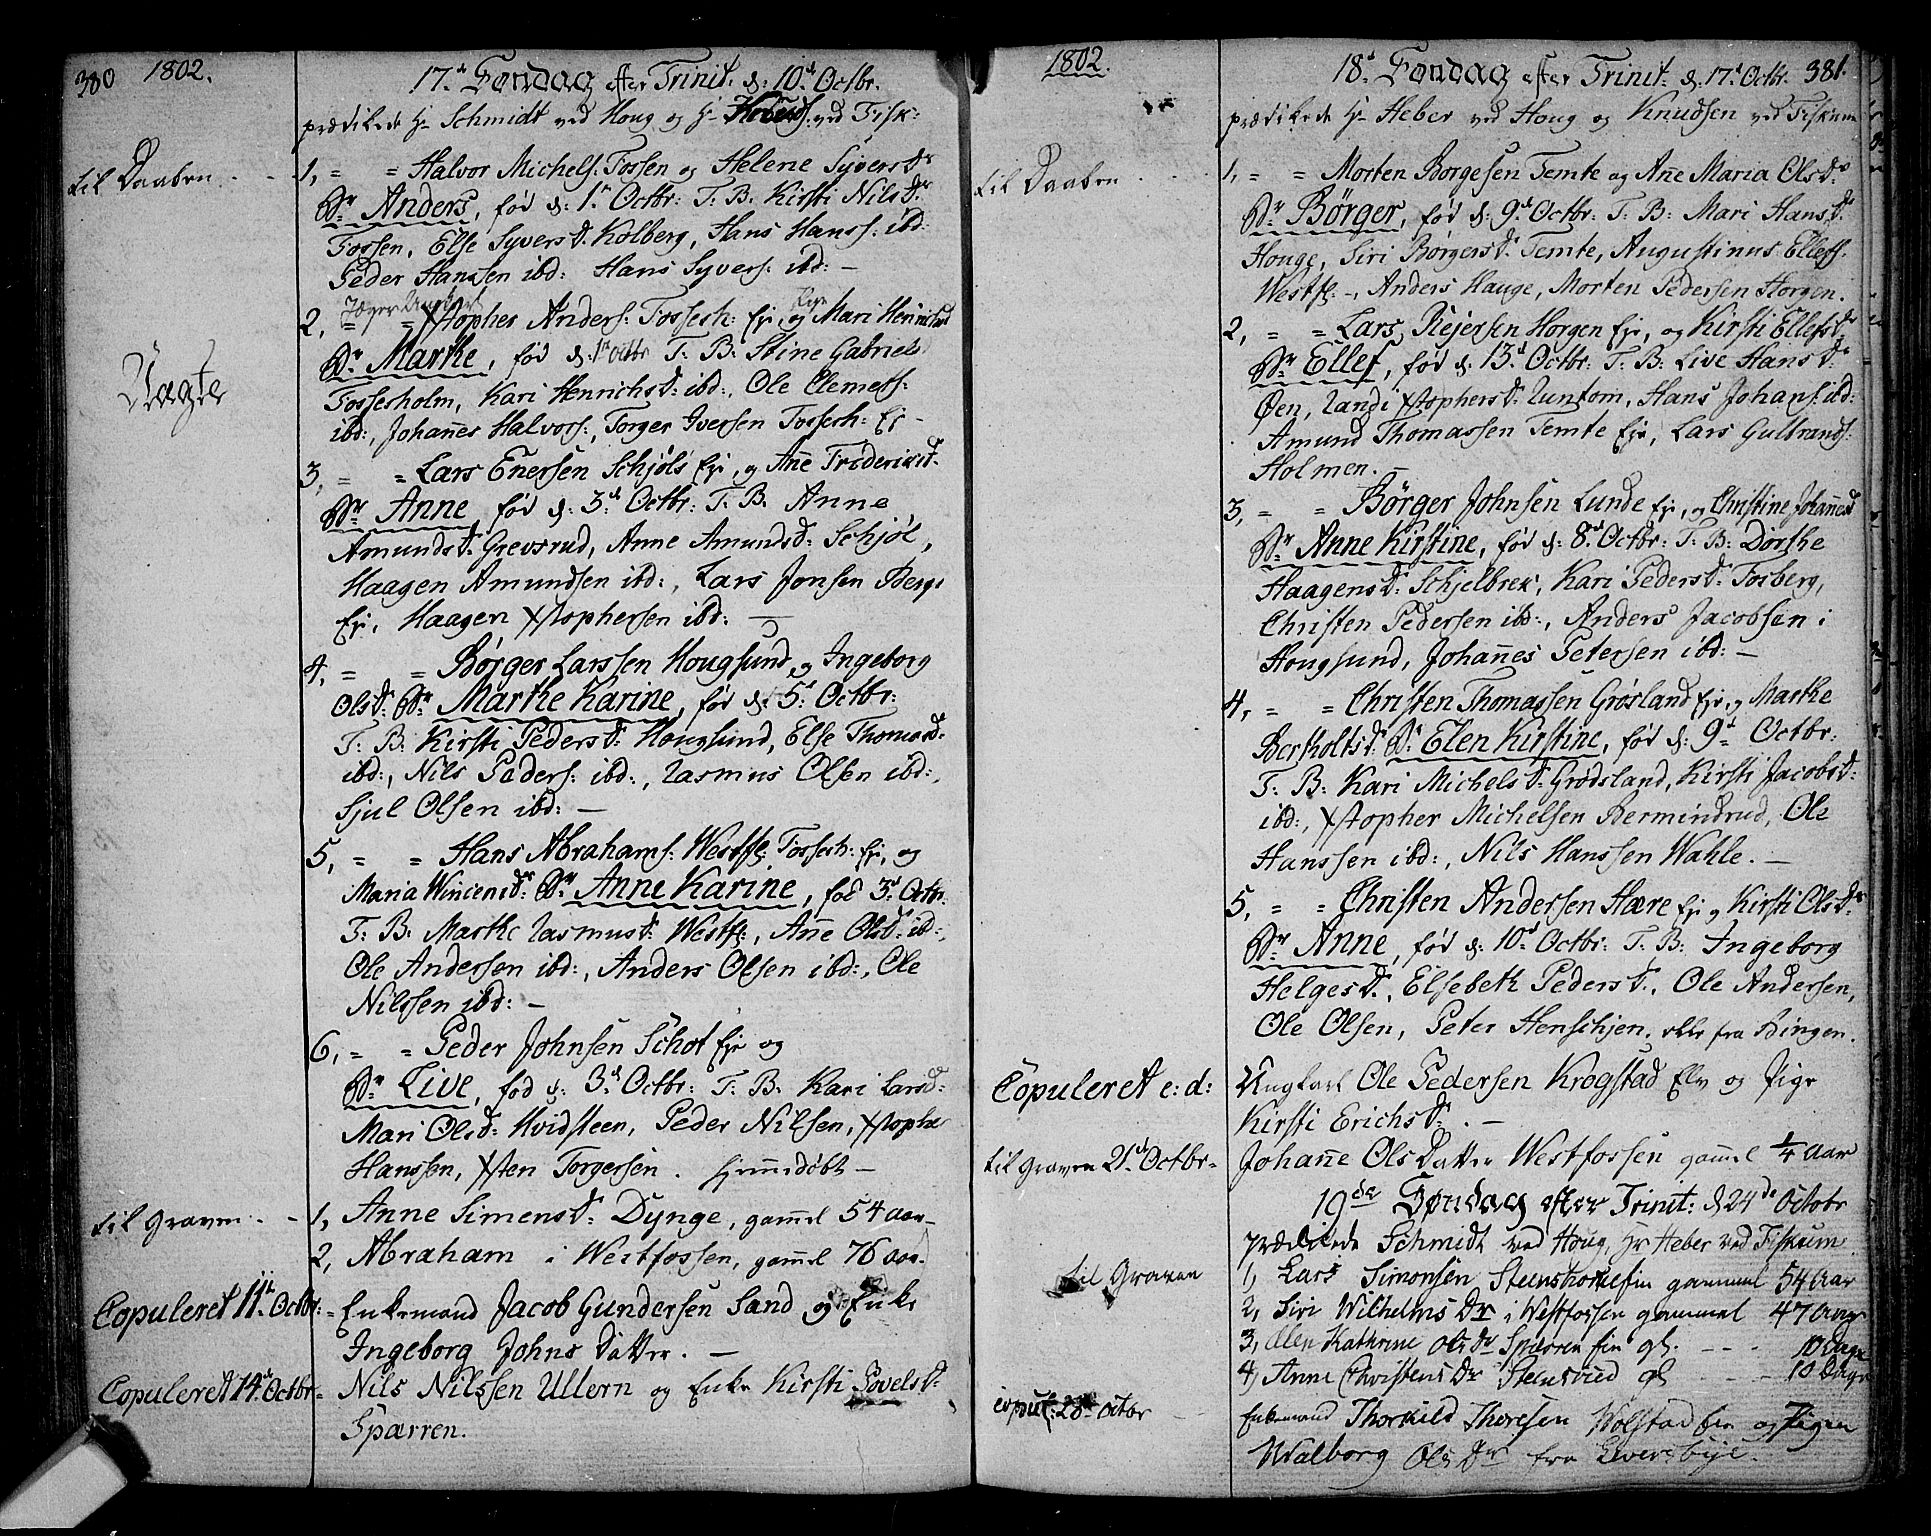 380 1802.
17d Søndag efter Trinit. d: 10d Octbr.
prædikede Hr Schmidt ved Houg og Hr ved Fisk:
til Daaben
1, = = Halvor Michels: Fossen og Helene Syvers Dr
Br Anders, fød d: 1n Octbr: T. B. Kirsti Nils Dr
Fossen, Else Syvers D: Kolberg, Hans Hanss: ibd:
Peder Hanssen ibd: Hans Syvers: ibd: –
2, = = Xstopher Anders: Fossesh: Eje, og Mari Henrichsd
Uægte
Br Marthe, fød d: 1n Octbr T. B: Stine Gabriels
Fossesholm, Kari Henrichs D: ibd:, Ole Clemets:
ibd:, Johañes Halvors:, Torger Iversen Fossesh: Ej –
3, = = Lars Enersen Schjøls Eje, og Añe Frideriksd:
Br Anne fød d: 3d Octbr: T. B. Anne
Amunds D: Grevsrud, Anne Amunds D: Schjøl,
Haagen Amundsen ibd:, Lars Jonsen Bergs
Eje, Haagen Xstophersen ibd: –
4, = = Børger Larssen Hougsund og Ingeborg
Ols D: Br Marthe Karine, fød d: 5d Octbr:
T. B: Kirsti Peders D: Hougsund, Else Thomasd:
ibd:, Nils Peders: ibd:, Rasmus Olsen ibd:,
Sjul Olsen ibd: –
5, = = Hans Abrahams: Westfs: Fossesh: Eje, og
Maria Wincens Dr: Br Anne Karine, fød 3d Octbr.
T. B. Marthe Rasmus D: Westfs:, Añe Olsd: ibd:,
Ole Andersen ibd:, Anders Olsen ibd:, Ole
Nilssen ibd: –
6, = = Peder Johnsen Schot Eje og
Br Live, fød d: 3d Octbr: T: B. Kari Larsd:
Mari Olsd: Hvidsteen, Peder Nilsen, Xstopher
Hanssen, Xsten Torgersen. Hjemmedøbt –
til Graven. – 1, Anne Simens D: Dynge, gamel 54 aar –
2, Abraham i Westfossen, gamel 76 aar.
Copuleret 11te Octbr: = Enkemand Jacob Gundersen Sand og Enke
Ingeborg Johns Datter. –
Copuleret 14d Octbr = Nils Nilssen Ullern og Enke Kirsti Povels D:
Sparren.
1802. 18d Søndag efter Trinit: d: 17d Octbr. 381.
prædikede Hr Heber ved Houg og Knudsen ved Fiskum
til Daaben
1, = = Morten Borgesen Temte og Ane Maria Ols Dr
Br Børger, fød d: 9d Octbr: T. B: Mari Hans D:
Houge, Siri Børgers D: Temte, Augustinus Ellefs:
Westfs: –, Anders Hauge, Morten Pedersen Horgen.
2, = = Lars Rejersen Horgen Eje, og Kirsti Ellefs Dr
Br Ellef, fød d: 13d Octbr: T. B: Live Hans D:
Øen, Randi Xstophers D: Runtom, Hans Johans: ibd:
Amund Thomassen Temte Eje, Lars Gulbrands:
Holmen. –
3, = = Børger Johnsen Lunde Eje, og Christine Johañesd
Br Anne Kirstine, fød d: 8d Octbr: T. B: Dorthe
Haagens D: Schjelbrek, Kari Peders D: Fosberg,
Christen Pedersen ibd:, Anders Jacobsen i
Hougsund, Johañes Petersen ibd: –
4, = = Christen Thomassen Grøsland Eje, og Marthe
Bertholts D: Br Elen Kirstine, fød d: 9d Octbr:
T. B: Kari Michels D: Grødsland, Kirsti Jacobs D:
ibd:, Xstopher Michelsen Bermindrud, Ole
Hanssen ibd:, Nils Hanssen Wahle. –
5, = = Christen Andersen Hære Eje og Kirsti Ols Dr
Br Anne, fød d: 10d Octbr: T. B: Ingeborg
Helges D:, Elsebeth Peders D:, Ole Andersen,
Ole Olsen, Peter Henschjen, alle fra Bingen.
Copuleret e: d: Ungkarl Ole Pedersen Krogstad Elv og Pige
Kirsti Erichs D: –
til Graven 21de Octbr – Johañe Ols Datter Westfossen gamel 1/4 Aar
19de Søndag efter Trinit: d 24de Octobr
prædikede Schmidt ved Houg, Hr Heber ved Fiskum.
til Graven
1, Lars Simonsen gammel 54 Aar
2, Siri Wilhelms Dr i Westfossen gammel 47 Aar
3, Ellen Kathrine Ols Dr Sparren Eie gl. – – – 10 Dage
4, Anne Christens Dr Steinsrud gl – – – 10 Dage
copul: 28de Octbr Enkemand Thorkild Thoresen Wolstad Eie og Pigen
Walborg Ols Dr fra